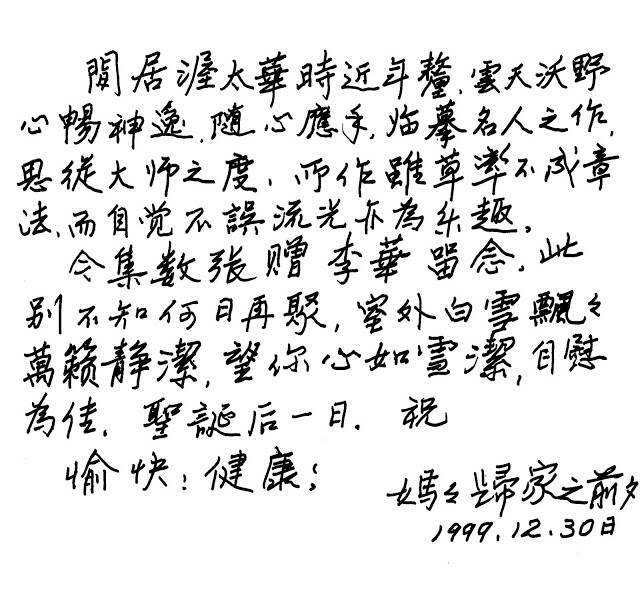 閒居渥太華時近年釐,雲天沃野
心暢神逸,随心應手,临摹名人之作,
思從大师之度,而作雖草率不成章
法,而自觉不誤流光亦為乐趣。
今集数張赠李華留念,此
别不知何日再聚,室外白雪飄々
萬籟静潔,望你心如雪潔,自慰
為佳,聖誕后一日.祝
愉快;健康;
媽々歸家之前夕
1999.12.30日